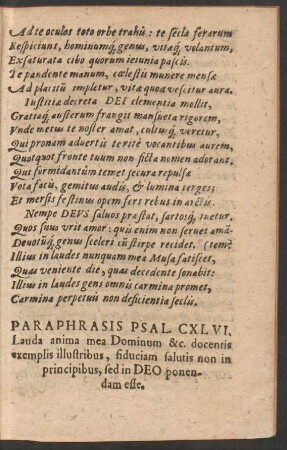 Ad te oculos toto orbe trahũt: te secla ferarum
Respiciunt, hominumq́; genus, vitaq́; volantum,
Exsaturata cibo quorum ieiunia pascis.
Te pandente manum, cœlestis munere mensæ
Ad placitũ impletur, vitæ quoa vescitur aura.
Iustitiæ decreta DEI clementia mollit,
Grattaq́; austerum frangit mansueta rigorem,
Vnde metus te noster amat, cultusq́; veretur,
Qui pronam advertis te ritè vocantibus aurem,
Quotquot fronte tuum non ficta nomen adorant.
Qui formidantũm temet secura repulsæ
Vota facis, gemitus audis, & lumina terges;
Et mersis festinus opem fers rebus in arctis.
Nempe DEVS salvos præstat, sartosq́; tuetur.
Quos suus vrit amor: quis enim non servet amã-
Devotũq́; genus sceleri cũ stirpe recidet. (tem?
Illius in laudes nunquam mea Musa fatiscet,
Quas veniente die, quas decedente sonabit:
Illius in laudes gens omnis carmina promet,
Carmina perpetuis non deficientia seclis.
PARAPHRASIS PSAL. CXLVI.
Lauda anima mea Dominum &c. docentis
exemplis illustribus, fiduciam salutis non in
principibus, sed in DEO ponen-
dam esse.